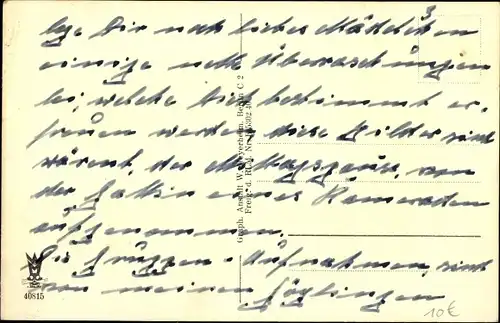 lege Dir noch liebes Mädchen
einige nette Überraschungen
bei, welche Dich bestimmt er-
freuen werden diese Bilder sind
wärent der Mittagspause, von
der Gattin eines Kameraden
aufgenommen.
Die Gruppen-Aufnahmen, sind
von meinen Zöglingen
3
Graph. Anstalt W. Meyerheim, Berlin C 2
40815
10€